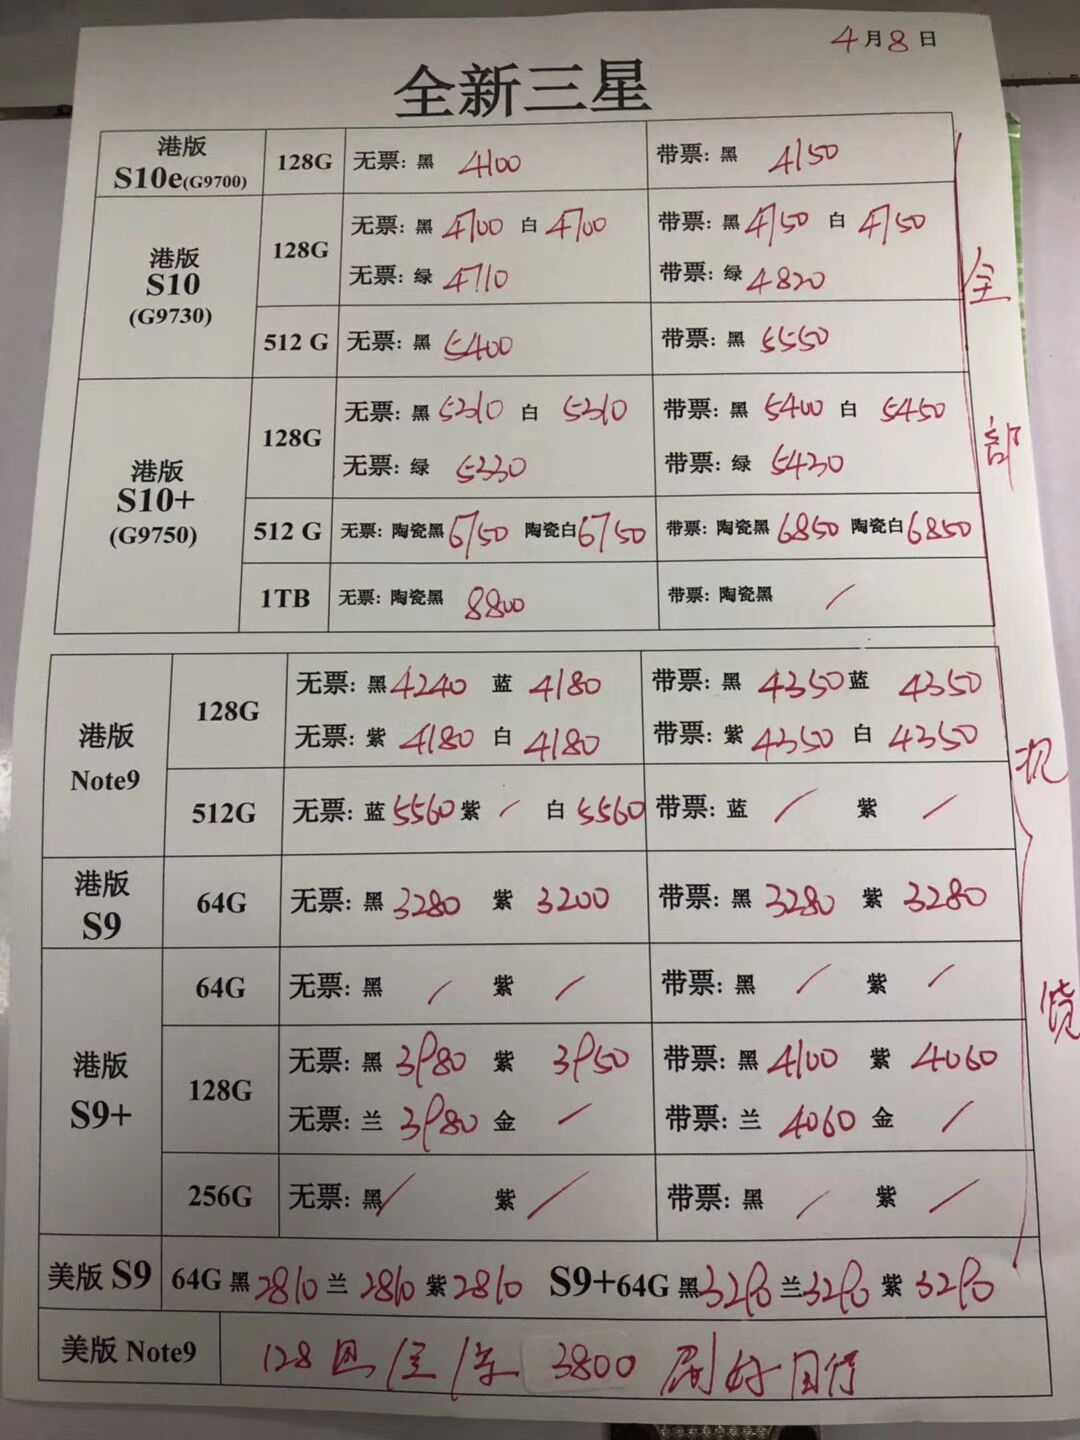 4月8日
全新三星
港版 S10e(G9700) 128G 无票: 黑 4100 带票: 黑 4150
港版 S10 (G9730) 128G 无票: 黑 4700 白 4700 带票: 黑 4750 白 4750
无票: 绿 4710 带票: 绿 4820
512 G 无票: 黑 5400 带票: 黑 5550
港版 S10+ (G9750) 128G 无票: 黑 5310 白 5310 带票: 黑 5400 白 5450
无票: 绿 5330 带票: 绿 5430
512 G 无票: 陶瓷黑 6750 陶瓷白 6750 带票: 陶瓷黑 6850 陶瓷白 6850
1TB 无票: 陶瓷黑 8800 带票: 陶瓷黑 /
港版 Note9 128G 无票: 黑 4240 蓝 4180 带票: 黑 4350 蓝 4350
无票: 紫 4180 白 4180 带票: 紫 4350 白 4350
512G 无票: 蓝 5560 紫 / 白 5560 带票: 蓝 / 紫 /
港版 S9 64G 无票: 黑 3280 紫 3200 带票: 黑 3280 紫 3280
港版 S9+ 64G 无票: 黑 / 紫 / 带票: 黑 / 紫 /
128G 无票: 黑 3980 紫 3950 带票: 黑 4100 紫 4060
无票: 兰 3980 金 / 带票: 兰 4060 金 /
256G 无票: 黑 / 紫 / 带票: 黑 / 紫 /
美版 S9 64G 黑 2810 兰 2810 紫 2810 S9+64G 黑 3290 兰 3290 紫 3290
美版 Note9 128 3800 刷好国行
全部机货